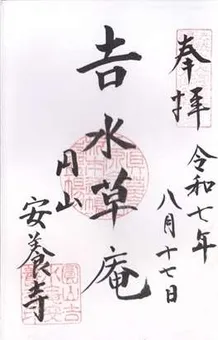 奉拝
令和七年
八月十七日
吉水草庵
円山
安養寺